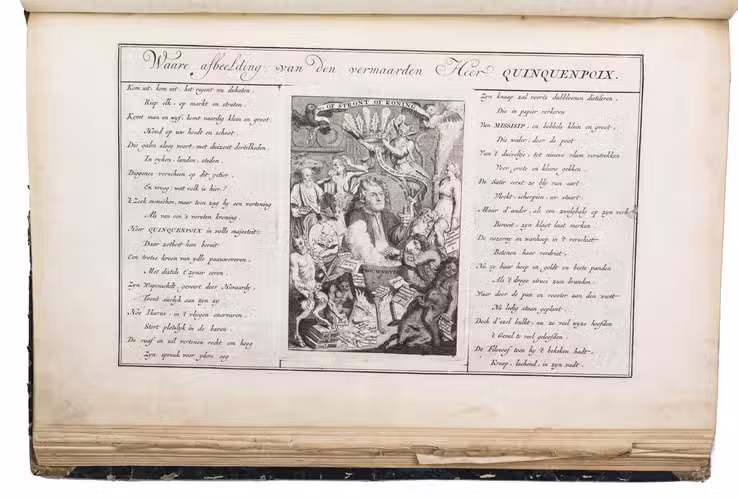 Waare afbeelding van den vermaarden Heer QUINQUENPOIX.
Kom uit, kom uit, het regent nu dukaten,
Riep elk, op markt en straten.
Komt man en wyf, komt vaardig klein en groot,
Houd op uw hoedt en schoot.
Die galm sloeg voort, met duizent dertelheden,
In ryken, landen, steden.
Diogenes verscheen op dit getier,
En vroeg, wat volk is hier?
't Zoek menschen, maar
Als van een's verste krooning.
Heer QUINQUENPOIX in volle majesteit
Daar zotheit hem bereit
Een trotse kroon van ydle paauweveeren,
Met distels t'zyner eeren.
Zyn Wapenschilt, geverft door
zyn zy
Hoe Ikarus, in 't vliegen onervaren,
Stort plotslyk in de baren.
De raaf en uil vertoonen recht om hoog
Zyn spreuk voor yders oog
OF STRONT OF KONING
Zyn knaap zal voorts dubbloenen distileren,
Die in papier verkeren
Van MISSISIP, en bobbels klein en groot,
Die weder, door de poot
Van 't duiveltje, tot nieuwe vlam verstrekken
Voor grote en kleine gekken.
De Satir
Maar d'ander, als een zwelgbalg op zyn
Berout, zyn klagt laat merken
De razerny en wanhoop in 't verschiet
Betonen haar verdriet.
Nu zy haar hoop en geldt en beste panden
Als 't droge stroo zien branden.
Waar door de pan en rooster aan den
Nu ledig staan geplant
Doch d'ezel bulkt, nu ze veel wyze hoofden
't Geval te veel geloofden.
De Filosoof toen hy 't bekeken hadt,
Kroop, lachend, in zyn vadt.